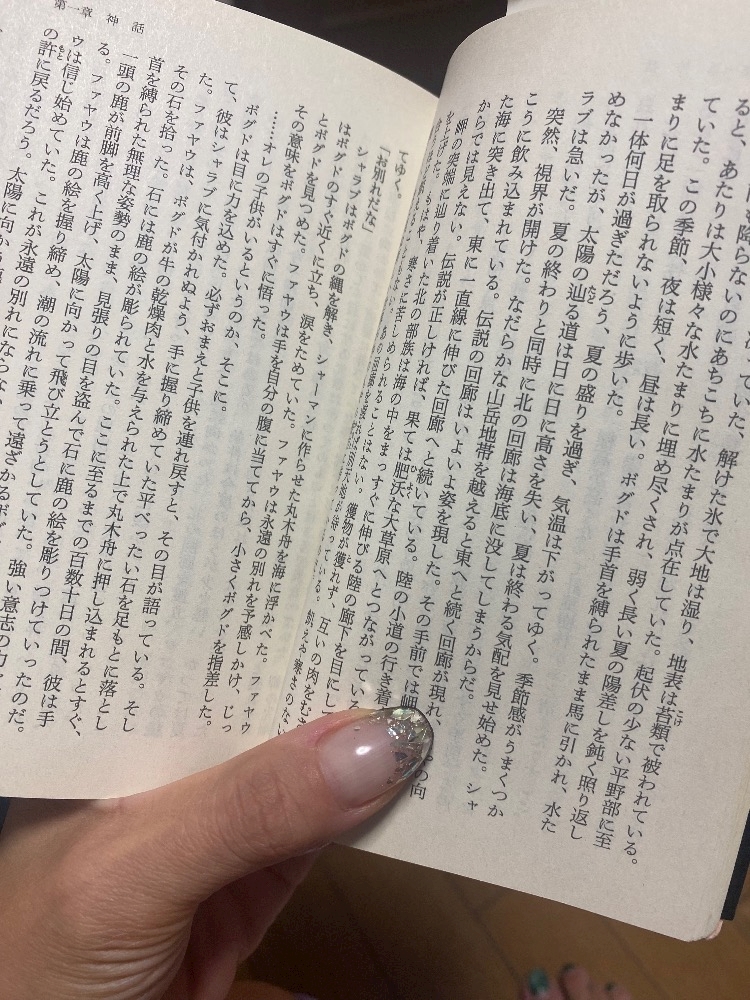 降らないのにあちこちに水たまりが点在していた。起伏の少ない平野部に至
ると、あたりは大小様々な水たまりに埋め尽くされ、弱く長い夏の陽差しを鈍く照り返し
ていた。この季節、夜は短く、昼は長い。ボグドは手首を縛られたまま馬に引かれ、水た
まりに足を取られないように歩いた。
一体何日が過ぎただろう、夏の盛りを過ぎ、気温は下がってゆく。季節感がうまくつか
めなかったが、太陽の辿る道は日に日に高さを失い、夏は終わる気配を見せ始めた。シャ
ラブは急いだ。夏の終わりと同時に北の回廊は海底に没してしまうからだ。
突然、視界が開けた。なだらかな山岳地帯を越えると東へと続く回廊が現れ、
こうに飲み込まれている。伝説の回廊はいよいよ姿を現した。その手前では岬
た海に突き出て、東に一直線に伸びた回廊へと続いている。陸の小道の行き着
からでは見えない。伝説が正しければ、果ては肥沃な大草原へとつながっている
岬の突端に辿り着いた北の部族は海の中をまっすぐに伸びる陸の廊下を目にして
てゆく。
「お別れだな」
シャラブはボグドの縄を解き、シャーマンに作らせた丸木舟を海に浮かべた。ファヤウ
はボグドのすぐ近くに立ち、涙をためていた。ファヤウは永遠の別れを予感しかけ、じっ
とボグドを見つめた。ファヤウは手を自分の腹に当ててから、小さくボグドを指差した。
その意味をボグドはすぐに悟った。
……オレの子供がいるというのか、そこに。
ボグドは目に力を込めた。必ずおまえと子供を連れ戻すと、その目が語っている。そし
て、彼はシャラブに気付かれぬよう、手に握り締めていた平べったい石を足もとに落とし
た。ファヤウは、ボグドが牛の乾燥肉と水を与えられた上で丸木舟に押し込まれるとすぐ、
その石を拾った。石には鹿の絵が彫られていた。ここに至るまでの百数十日の間、彼は手
首を縛られた無理な姿勢のまま、見張りの目を盗んで石に鹿の絵を彫りつけていったのだ。
一頭の鹿が前脚を高く上げ、太陽に向かって飛び立とうとしていた。強い意志の力
る。ファヤウは鹿の絵を握り締め、潮の流れに乗って遠ざかるボグ
ウは信じ始めていた。これが永遠の別れにならない
の許に戻るだろう。太陽に向かう
第一章 神話